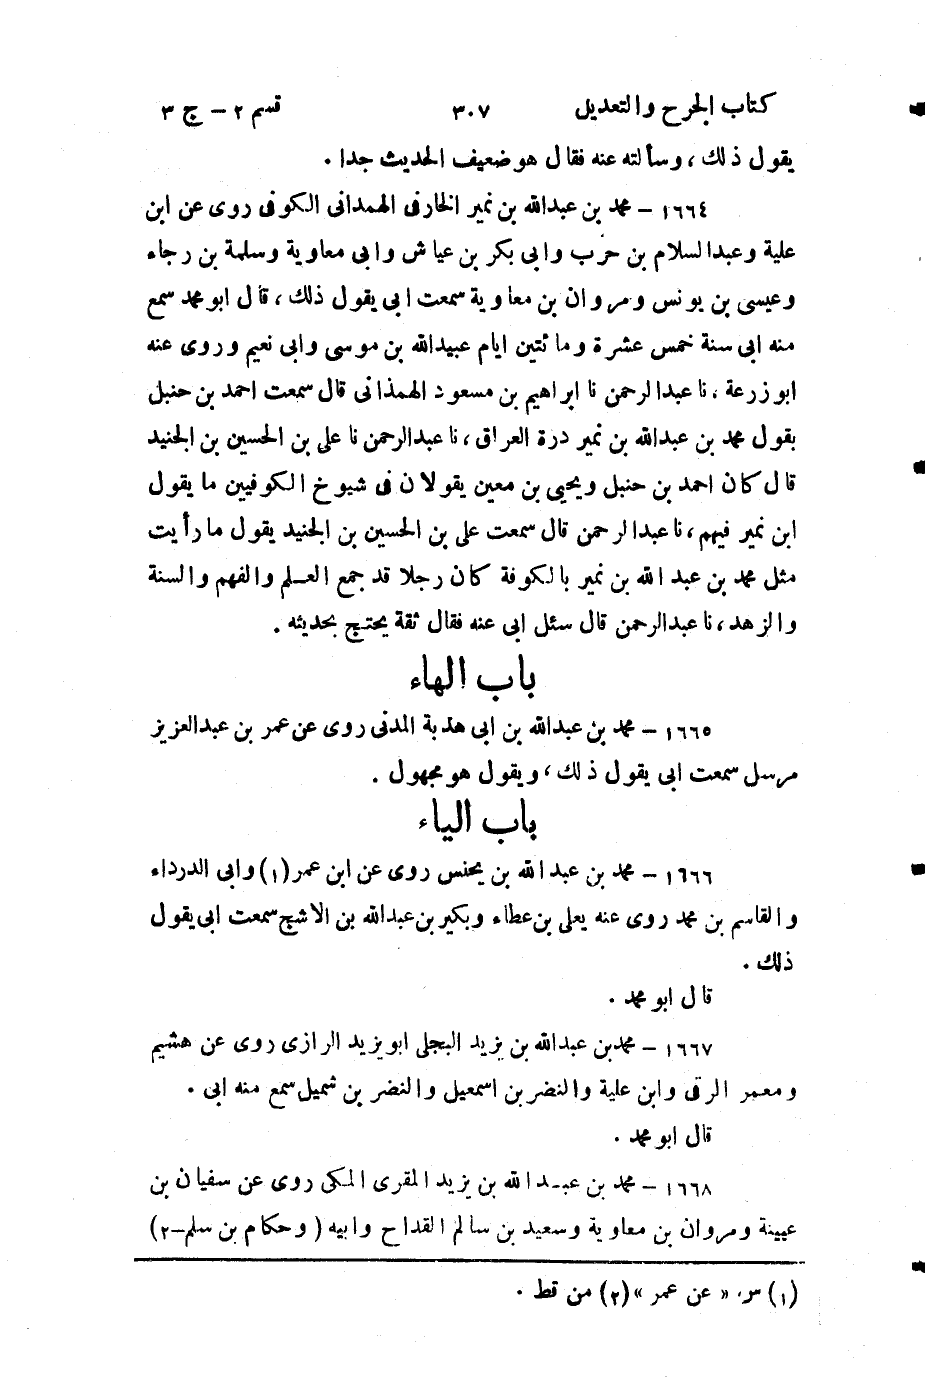 كتاب الجرح والتعديل ٣٠٧ قسم ٢ – ج ٣
يقول ذلك، وسألته عنه فقال هو ضعيف الحديث جدا .
١٦٦٤ – محمد بن عبدالله بن نمير الخارفى الهمدانى الكوفى روى عن ابن
علية وعبدالسلام بن حرب وابى بكر بن عياش وابى معاوية وسلمة بن رجاء
وعيسى بن يونس ومروان بن معاوية سمعت ابى يقول ذلك، قال ابو محمد سمع
منه ابى سنة خمس عشرة ومائتين ايام عبيدالله بن موسى وابى نعيم وروى عنه
ابو زرعة، نا عبدالرحمن نا ابراهيم بن مسعود الهمذانى قال سمعت احمد بن حنبل
يقول محمد بن عبدالله بن نمير درة العراق، نا عبدالرحمن نا على بن الحسين بن الجنيد
قال كان احمد بن حنبل ويحيى بن معين يقولان فى شيوخ الكوفيين ما يقول
ابن نمير فيهم، نا عبدالرحمن قال سمعت على بن الحسين بن الجنيد يقول ما رأيت
مثل محمد بن عبد الله بن نمير بالكوفة كان رجلا قد جمع العلم والفهم والسنة
والزهد، نا عبدالرحمن قال سئل ابى عنه فقال ثقة يحتج بحديثه .
باب الهاء
١٦٦٥ – محمد بن عبدالله بن ابى هدبة المدنى روى عن عمر بن عبدالعزيز
مرسل سمعت ابى يقول ذلك، ويقول هو مجهول .
باب الياء
١٦٦٦ – محمد بن عبد الله بن يحنس روى عن ابن عمر (١) وابى الدرداء
والقاسم بن محمد روى عنه يعلى بن عطاء وبكير بن عبدالله بن الاشج سمعت ابى يقول
ذلك .
قال ابو محمد .
١٦٦٧ – محمد بن عبدالله بن يزيد البجلى ابو يزيد الرازى روى عن هشيم
ومعمر الرقى وابن علية والنضر بن اسمعيل والنضر بن شميل سمع منه ابى .
قال ابو محمد .
١٦٦٨ – محمد بن عبد الله بن يزيد المقرى المكى روى عن سفيان بن
عيينة ومروان بن معاوية وسعيد بن سالم القداح وابيه (وحكام بن سلم–٢)
(١) س، « عن عمر » (٢) من قط .